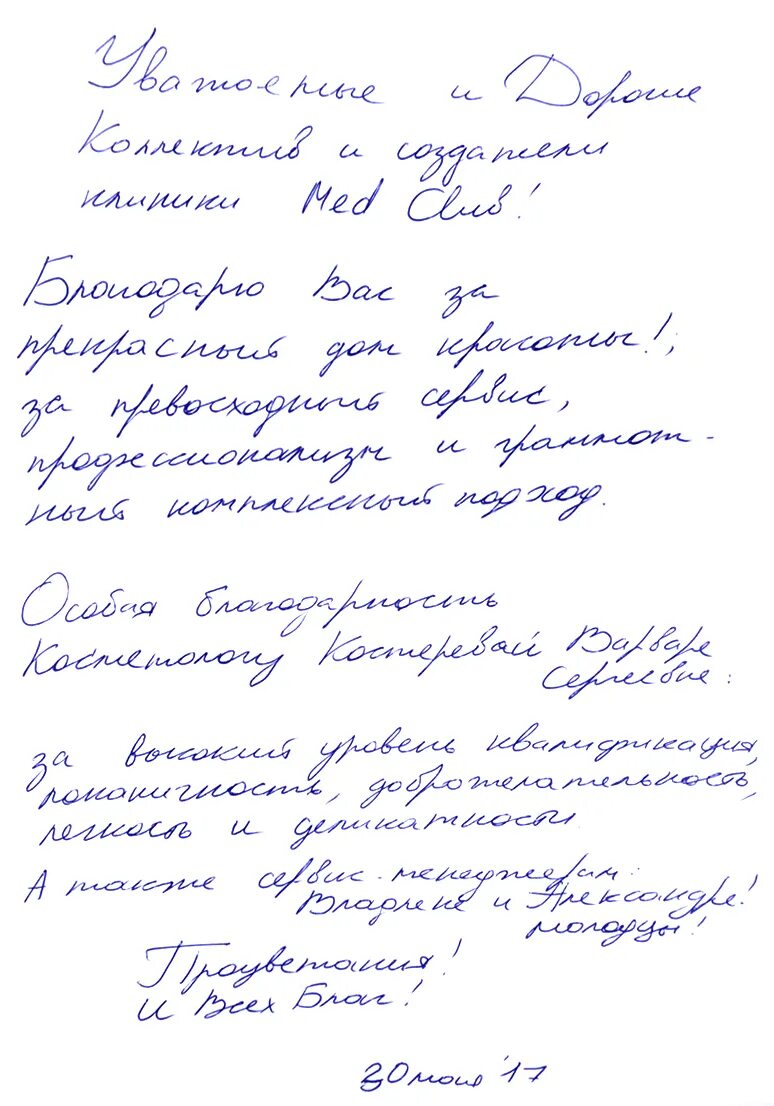 Уважаемые и Дорогие
Коллектив и создатели
клиники Med Club!
Благодарю Вас за
прекрасный дом красоты!,
за превосходный сервис,
профессионализм и грамот-
ный комплексный подход.
Особая благодарность
Косметологу Костеревой Варваре
Сергеевне:
за высокий уровень квалификация,
лаканичность, доброжелательность,
легкость и деликатность
А также сервис-менеджерам:
Владлене и Александре!
молодцы!
Процветания!
И Всех Благ!
30 мая '17